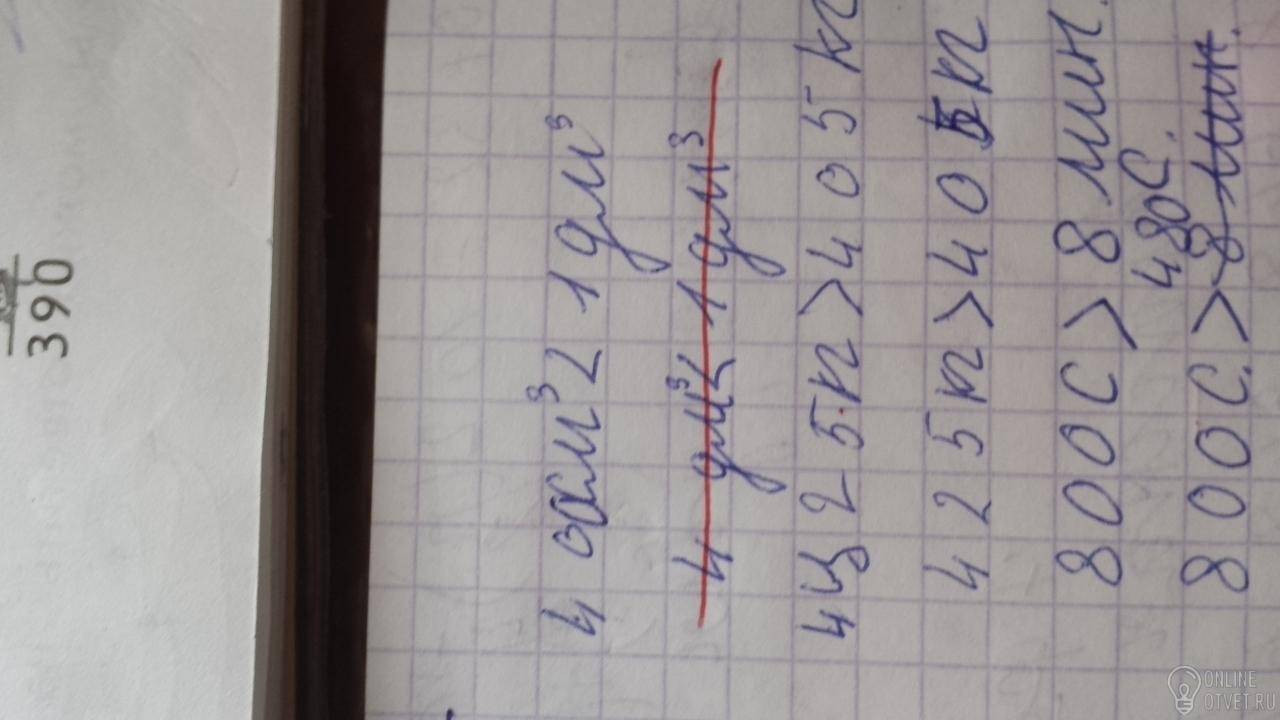 4 см³ < 1 дм³
4 дм³ < 1 дм³
4ц 25кг > 405кг
425кг > 405кг
800С > 8мин.
480С.
800С. > 8мин.
390
ONLINE
OTVET.RU